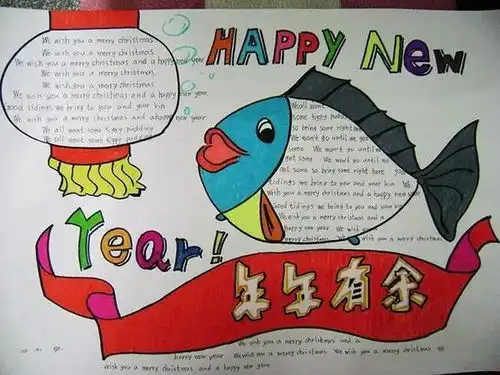 HAPPY NEW
We wish you a merry christmas
We wish you a merry christmas
We wish you a merry christmas and a happy new year
We wish you a merry christmas.
We wish you a merry christmas
We wish you a merry christmas and a happy new year.
Good tidings we bring to you and your kin
We wish you a merry christmas and a happy new year
We all want some figgy pudding
We all want some figgy pudding
We all want
some figgy pudding
so bring some right
We won't go until we get
some We won't go until we
get some We won't go until
some so bring some right here
tidings we bring to you and your kin We
wish you a merry christmas and a happy new year
Good tidings we bring to you and your kin
We wish you a merry christmas and a
Happy new year We wish you
We wish you a merry christmas
Year!
年年有余
We wish you a merry christmas and a
happy new year We wish you a merry christmas We wish you a merry christmas
wish you a merry christmas and a happy new year